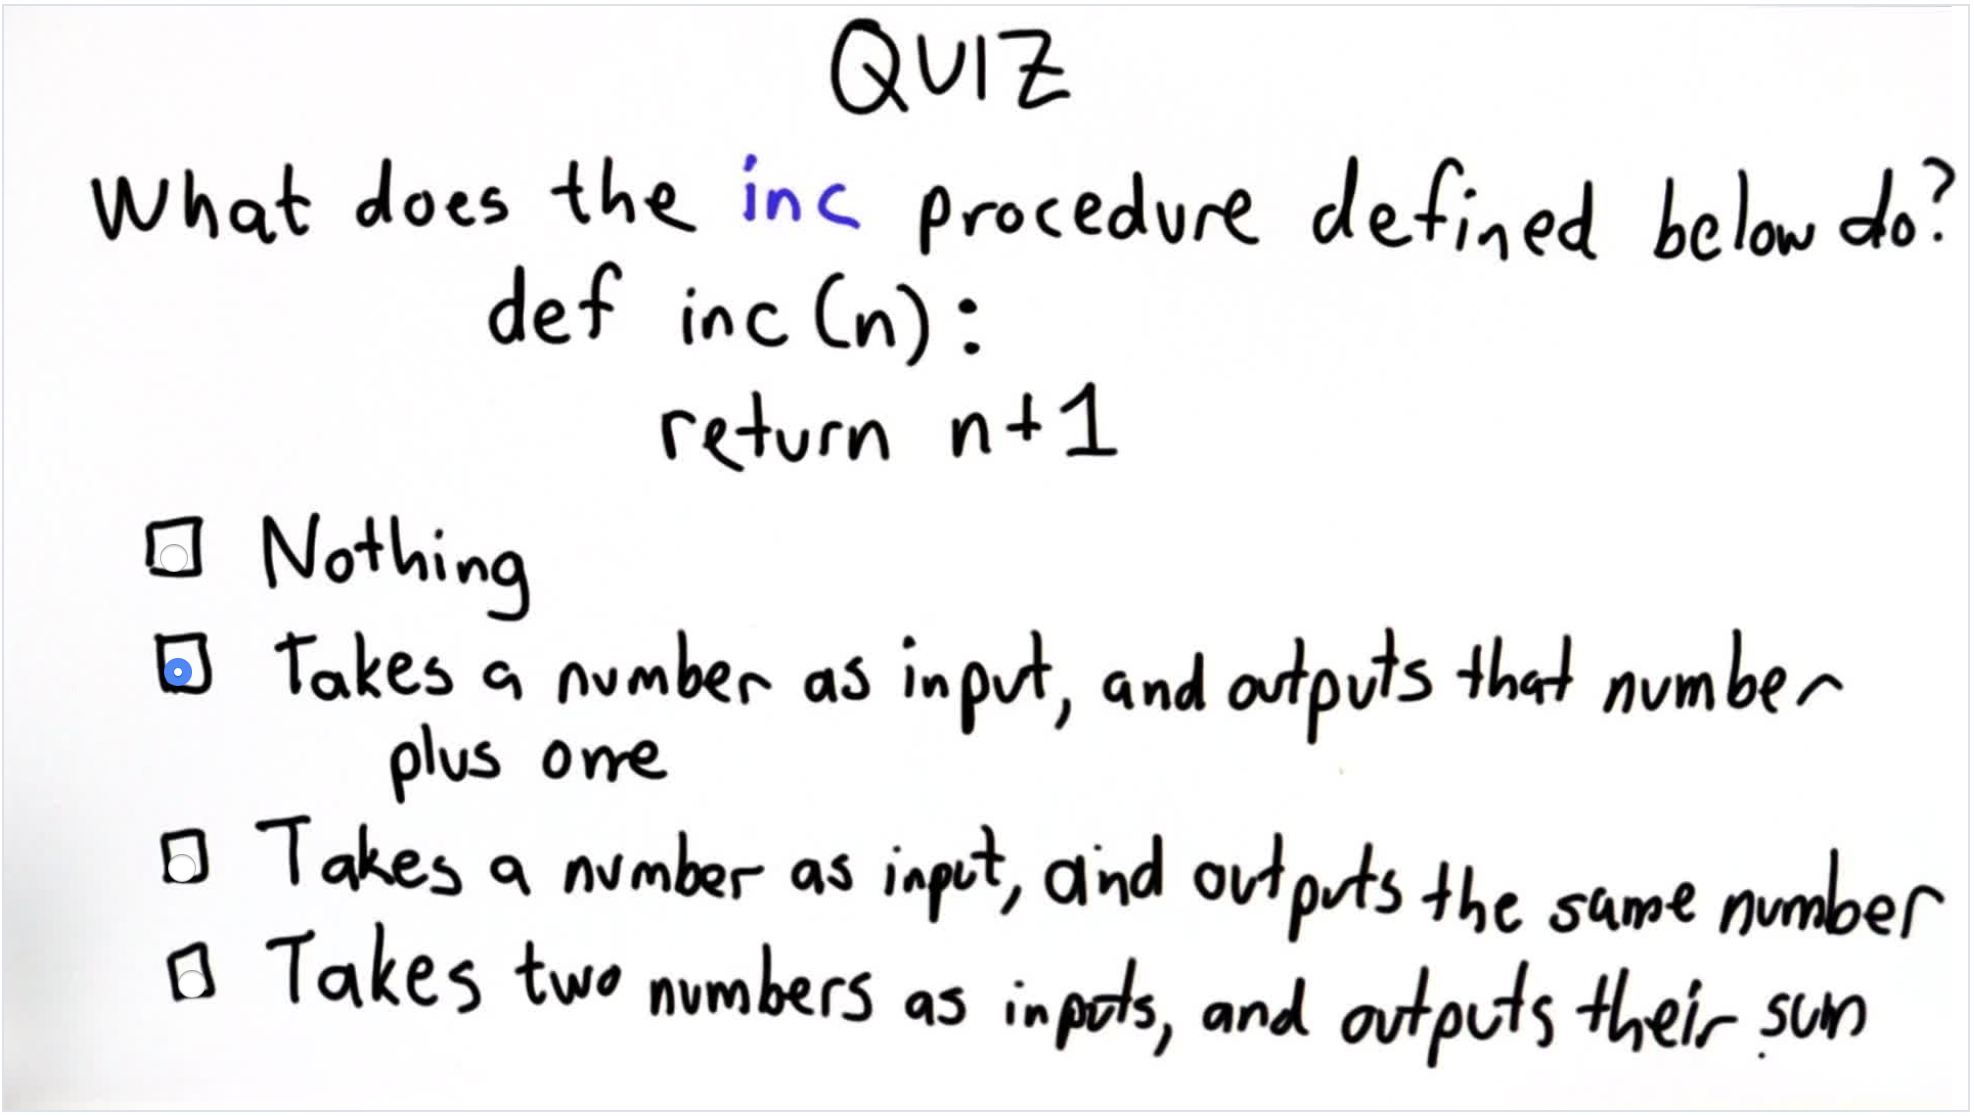 QUIZ
What does the inc procedure defined below do?
def inc(n):
return n+1
Nothing
Takes a number as input, and outputs that number
plus one
Takes a number as input, and outputs the same number
Takes two numbers as inputs, and outputs their sum